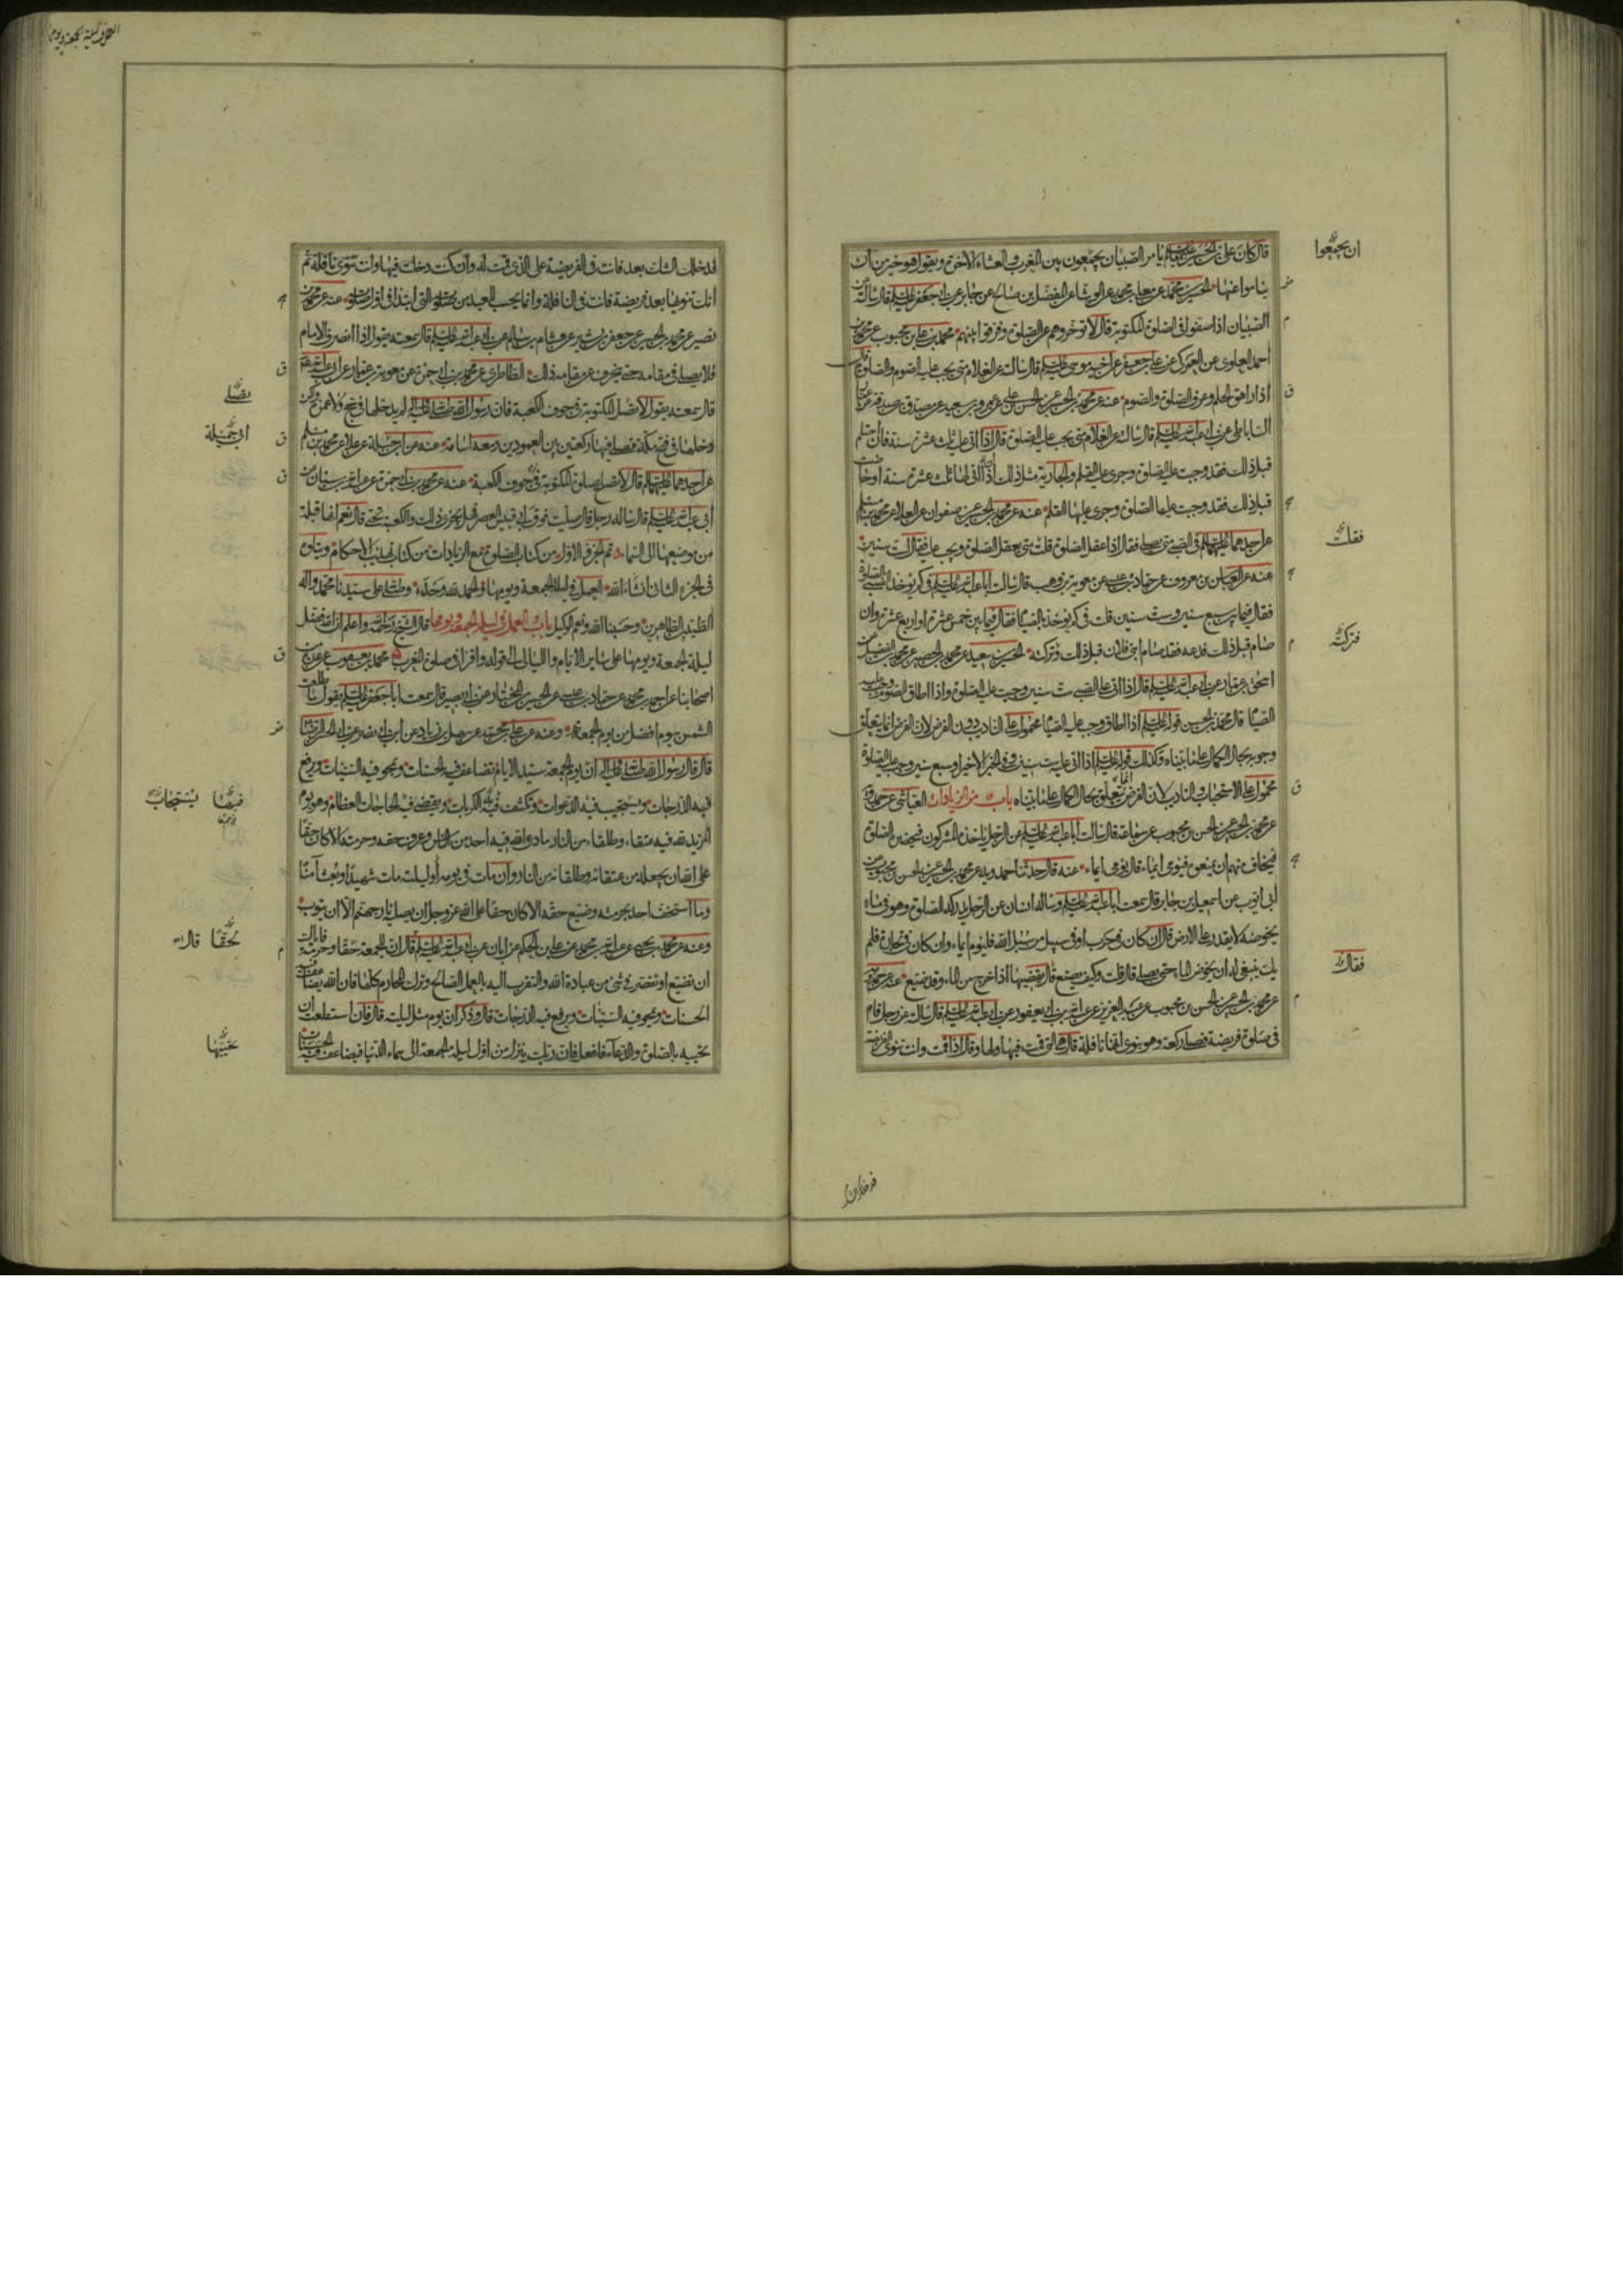 قال كان علي بن الحسين عليهما السلم يأمر الصبيان يجمعون بين المغرب والعشاء الآخرة ويقول هو خير من ان
يناموا عنها الحسين بن محمد عن معلى بن محمد عن الوشا عن المفضل بن صالح عن جابر عن ابي جعفر عليه السلم قال سألته عن
الصبيان اذا صفوا في الصلوة المكتوبة قال لا تؤخروهم عن الصلوة وفرقوا بينهم محمد بن علي بن محبوب عن محمد بن
احمد العلوي عن العمركي عن علي بن جعفر عن اخيه موسى عليه السلم قال سألته عن الغلام متى يجب عليه الصوم والصلوة قال
اذا راهق الحلم وعرف الصلوة والصوم عنه عن محمد بن الحسين عن الحسن بن علي عن عمرو بن سعيد عن مصدق بن صدقة عن عمار
الساباطي عن ابي عبد الله عليه السلم قال سألته عن الغلام متى يجب عليه الصلوة قال اذا اتى عليه ثلث عشرة سنة فان احتلم
قبل ذلك فقد وجبت عليه الصلوة وجرى عليه القلم والجارية مثل ذلك اذا اتى لها ثلث عشرة سنة او حاضت
قبل ذلك فقد وجبت عليها الصلوة وجرى عليها القلم عنه عن محمد بن الحسين عن صفوان عن العلا عن محمد بن مسلم
عن احدهما عليهما السلم في الصبي متى يصلي فقال اذا عقل الصلوة قلت متى يعقل الصلوة ويجب عليه فقال لست سنين
عنه عن العباس بن معروف عن حماد بن عيسى عن معوية بن وهب قال سألت ابا عبد الله عليه السلم في كم يؤخذ الصبي بالصلوة
فقال فيما بين سبع سنين وست سنين قلت في كم يؤخذ بالصيام فقال فيما بين خمس عشرة او اربع عشرة وان
صام قبل ذلك فدعه فقد صام ابني فلان قبل ذلك وتركته الحسين بن سعيد عن محمد بن الحصين عن محمد بن الفضيل عن
اسحق بن عمار عن ابي عبد الله عليه السلم قال اذا اتى على الصبي ست سنين وجب عليه الصلوة واذا اطاق الصوم وجب عليه
الصيام قال محمد بن الحسن قوله عليه السلم اذا اطاق وجب عليه الصيام محمول على التاديب دون الفرض لان الفرض انما يتعلق
وجوبه بحال الكمال على ما بيناه وكذلك قوله عليه السلم اذا اتى عليه ست سنين وفي الخبر الاخير او سبع سنين وجب عليه الصلوة
محمول على الاستحباب والتاديب لان الفرض انما يتعلق بحال الكمال على ما بيناه باب من الزيادات العياشي عن حمدويه
عن محمد بن الحسين عن الحسن بن محبوب عن سماعة قال سألت ابا عبد الله عليه السلم عن الرجل ياخذه المشركون فيحضره الصلوة
فيخاف منهم ان يمنعوه فيومي ايماء قال يومي ايماء عنه قال حدثنا حمدويه عن محمد بن الحسين عن الحسن بن محبوب عن
ابي ايوب عن اسمعيل بن جابر قال سمعت ابا عبد الله عليه السلم وسأله انسان عن الرجل يدركه الصلوة وهو في ماء
يخوضه لا يقدر على الارض قال ان كان في حرب او في سبيل من سبل الله فليوم ايماء وان كان في تجارة فلم
يك ينبغي له ان يخوض الماء حتى يصلي قال قلت وكيف يصنع قال يقضيها اذا خرج من الماء وقد ضيع عنه عن حمدويه
عن محمد بن الحسين عن الحسن بن محبوب عن عبد العزيز عن عبد الله بن ابي يعفور عن ابي عبد الله عليه السلم قال سألته عن رجل قام
في صلوة فريضة فصلى ركعة وهو ينوي انها نافلة قال هي التي قمت فيها ولها وقال اذا قمت وانت تنوي الفريضة
ان يجمعوا
فقلت
فتركته
فقال
فدخلك الشك
العمل في ليلة الجمعة ويومها
فدخلك الشك بعد فانت في الفريضة على الذي قمت له وان كنت دخلت فيها وانت تنوي نافلة ثم
انك تنويها بعد فريضة فانت في النافلة وانما يحسب للعبد من صلوته التي ابتدا في اول صلوته عنه عن محمد بن
نصير عن محمد بن الحسين عن جعفر بن بشير عن هشام بن سالم عن ابي عبد الله عليه السلم قال سمعته يقول اذا انصرف الامام
فلا يصلي في مقامه حتى ينحرف عن مقامه ذلك الطاطري عن محمد بن ابي حمزة عن معوية بن عمار عن ابي عبد الله عليه السلم
قال سمعته يقول لا تصل المكتوبة في جوف الكعبة فان رسول الله صلى الله عليه وآله لم يدخلها في حج ولا عمرة ولكن
دخلها في فتح مكة فصلى فيها ركعتين بين العمودين ومعه اسامة عنه عن ابي جميلة عن علا عن محمد بن مسلم
عن احدهما عليهما السلم قال لا تصلح صلوة المكتوبة في جوف الكعبة عنه عن محمد بن ابي حمزة عن عبد الله بن سنان عن
ابي عبد الله عليه السلم قال سأله رجل قال صليت فوق ابي قبيس العصر فهل يجزي ذلك والكعبة تحتي قال نعم انها قبلة
من موضعها الى السماء تم الجزو الاول من كتاب الصلوة مع الزيادات من كتاب تهذيب الاحكام ويتلوه
في الجزء الثاني انشاء الله العمل في ليلة الجمعة ويومها والحمد لله وحده وصلى الله على سيدنا محمد وآله
الطيبين الطاهرين وحسبنا الله ونعم الوكيل باب العمل في ليلة الجمعة ويومها قال الشيخ رحمه الله واعلم ان الله فضل
ليلة الجمعة ويومها على ساير الايام والليالي الى قوله واقرا في صلوة المغرب محمد بن يعقوب عن عدة من
اصحابنا عن احمد بن محمد عن حماد بن عيسى عن الحسين بن المختار عن ابي بصير قال سمعت ابا جعفر عليه السلم يقول ما طلعت
الشمس بيوم افضل من يوم الجمعة وعنه عن علي بن محمد عن سهل بن زياد عن ابن ابي نصر عن ابي الحسن الرضا
قال قال رسول الله صلى الله عليه وآله ان يوم الجمعة سيد الايام تضاعف فيه الحسنات وتمحو فيه السيئات ويرفع
فيه الدرجات ويستجيب فيه الدعوات وتكشف فيه الكربات ويقضي فيه الحاجات العظام وهو يوم
المزيد لله فيه عتقاء وطلقاء من النار ما دعا الله فيه احد من الناس وعرف حقه وحرمته الا كان حقا
على الله ان يجعله من عتقائه وطلقائه من النار وان مات في يومه او ليلته مات شهيدا وبعث آمنا
وما استخف احد بحرمته وضيع حقه الا كان حقا على الله عز وجل ان يصليه نار جهنم الا ان يتوب
وعنه عن محمد بن يحيى عن عبد الله بن محمد عن علي بن الحكم عن ابان عن ابي عبد الله عليه السلم قال ان للجمعة حقا وحرمة فاياك
ان تضيع او تقصر في شئ من عبادة الله والتقرب اليه بالعمل الصالح وترك المحارم كلها فان الله يضاعف فيه
الحسنات ويمحو فيه السيئات ويرفع فيه الدرجات قال وذكر ان يومه مثل ليلته قال فان استطعت ان
تحييه بالصلوة والدعاء فافعل فان ربك ينزل من اول ليلة الجمعة الى سماء الدنيا فيضاعف فيه الحسنات
يصلي
ابي جميلة
يستجاب
لحقا قال
تحييها